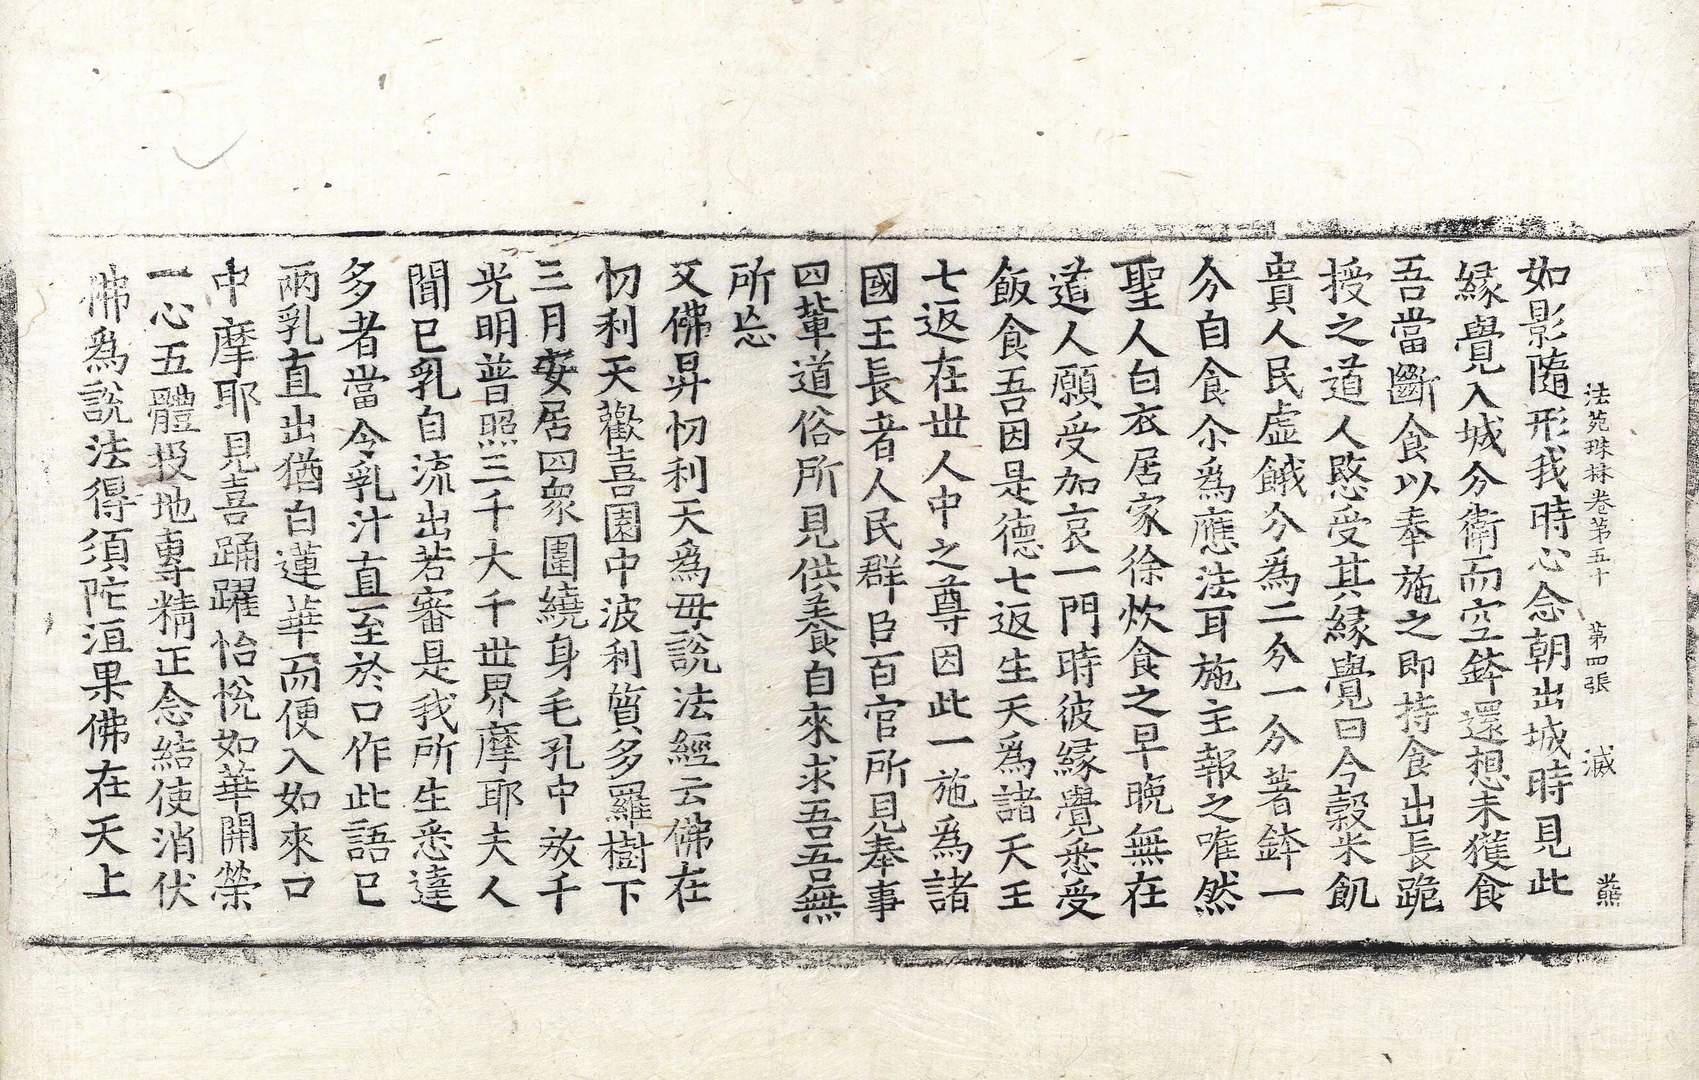 法苑珠林卷第五十 第四張 滅 熊
如影隨形我時心念朝出城時見此
緣覺入城分衛而空鉢還想未獲食
吾當斷食以奉施之即持食出長跪
授之道人愍受其緣覺曰今穀米飢
貴人民虛餓分爲二分一分著鉢一
分自食尒爲應法耳施主報之唯然
聖人白衣居家徐炊食之早晚無在
道人願受加哀一門時彼緣覺悉受
飯食吾因是德七返生天爲諸天王
七返在世人中之尊因此一施爲諸
國王長者人民群臣百官所見奉事
四輩道俗所見供養食自來求吾吾無
所忘
又佛昇忉利天爲母說法經云佛在
忉利天歡喜園中波利質多羅樹下
三月安居四衆圍繞身毛孔中放千
光明普照三千大千世界摩耶夫人
聞已乳自流出若審是我所生悉達
多者當令乳汁直至於口作此語已
兩乳直出猶白蓮華而便入如來口
中摩耶見喜踊躍怡悅如華開榮
一心五體投地專精正念結使消伏
佛爲說法得須陀洹果佛在天上